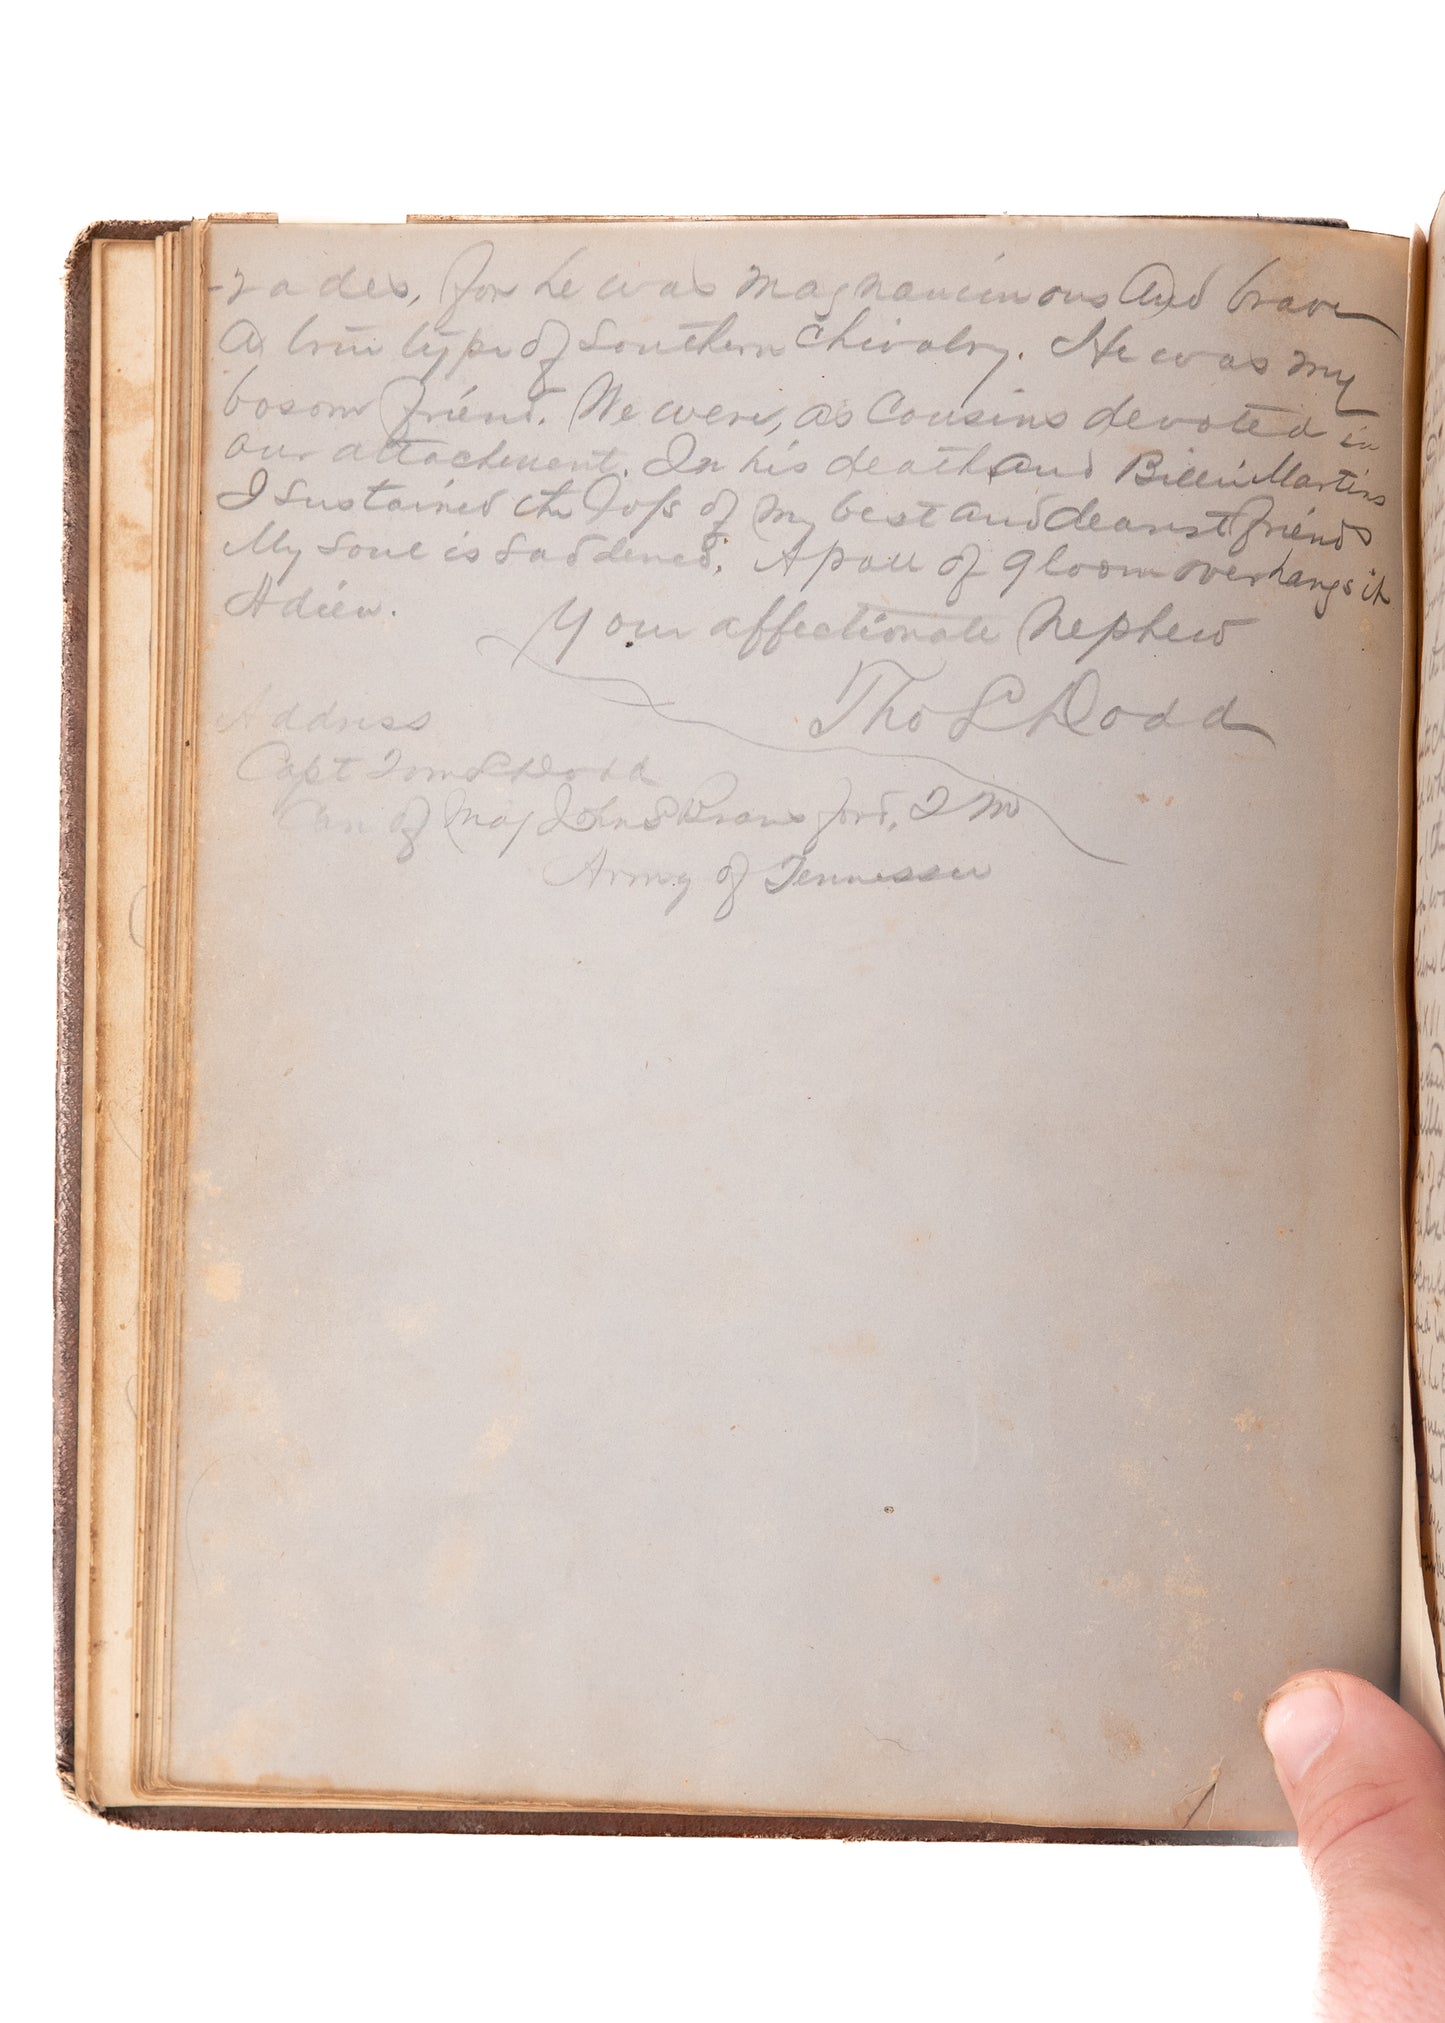 -rades, for he was magnanimous And brave
A true type of Southern Chivalry. He was my
bosom friend. We were, as Cousins devoted in
our attachment. In his death and Billie Martins
I sustained the loss of my best and dearest friends
My Soul is Saddened. A pall of gloom overhangs it
Adieu.
Your affectionate Nephew
Tho S Dodd
Address
Capt Tom S Dodd
Car of Maj John S Bransford, Q M
Army of Tennessee